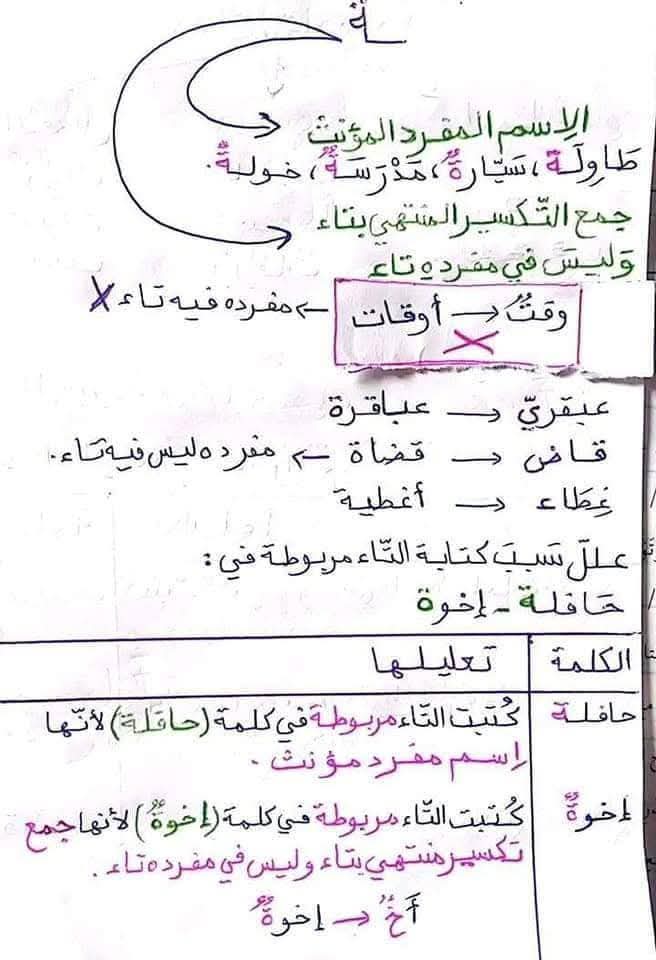 ـة
الإسم المفرد المؤنث
طَاوِلَةٌ، سَيَّارةٌ، مَدْرَسَةٌ، خولةٌ.
جمع التّكسير المنتهي بتاء
وَليسَ في مفرده تاء
وقتٌ → أوقات → مفرده فيه تاء X
X
عبقريّ → عباقرة
قاضٍ → قضاة → مفرده ليس فيه تاء.
غِطَاء → أغطية
علل سَببَ كتابة التّاء مربوطة في:
حَافلة - إخوة
الكلمة تعليلها
حافلة كُتبت التّاء مربوطة في كلمة (حافلة) لأنّها
إسم مفرد مؤنث.
إخوةٌ كُتبت التّاء مربوطة في كلمة (إخوةٌ) لأنها جمع
تكسير منتهي بتاء وليس في مفرده تاء.
أَخٌ → إخوةٌ